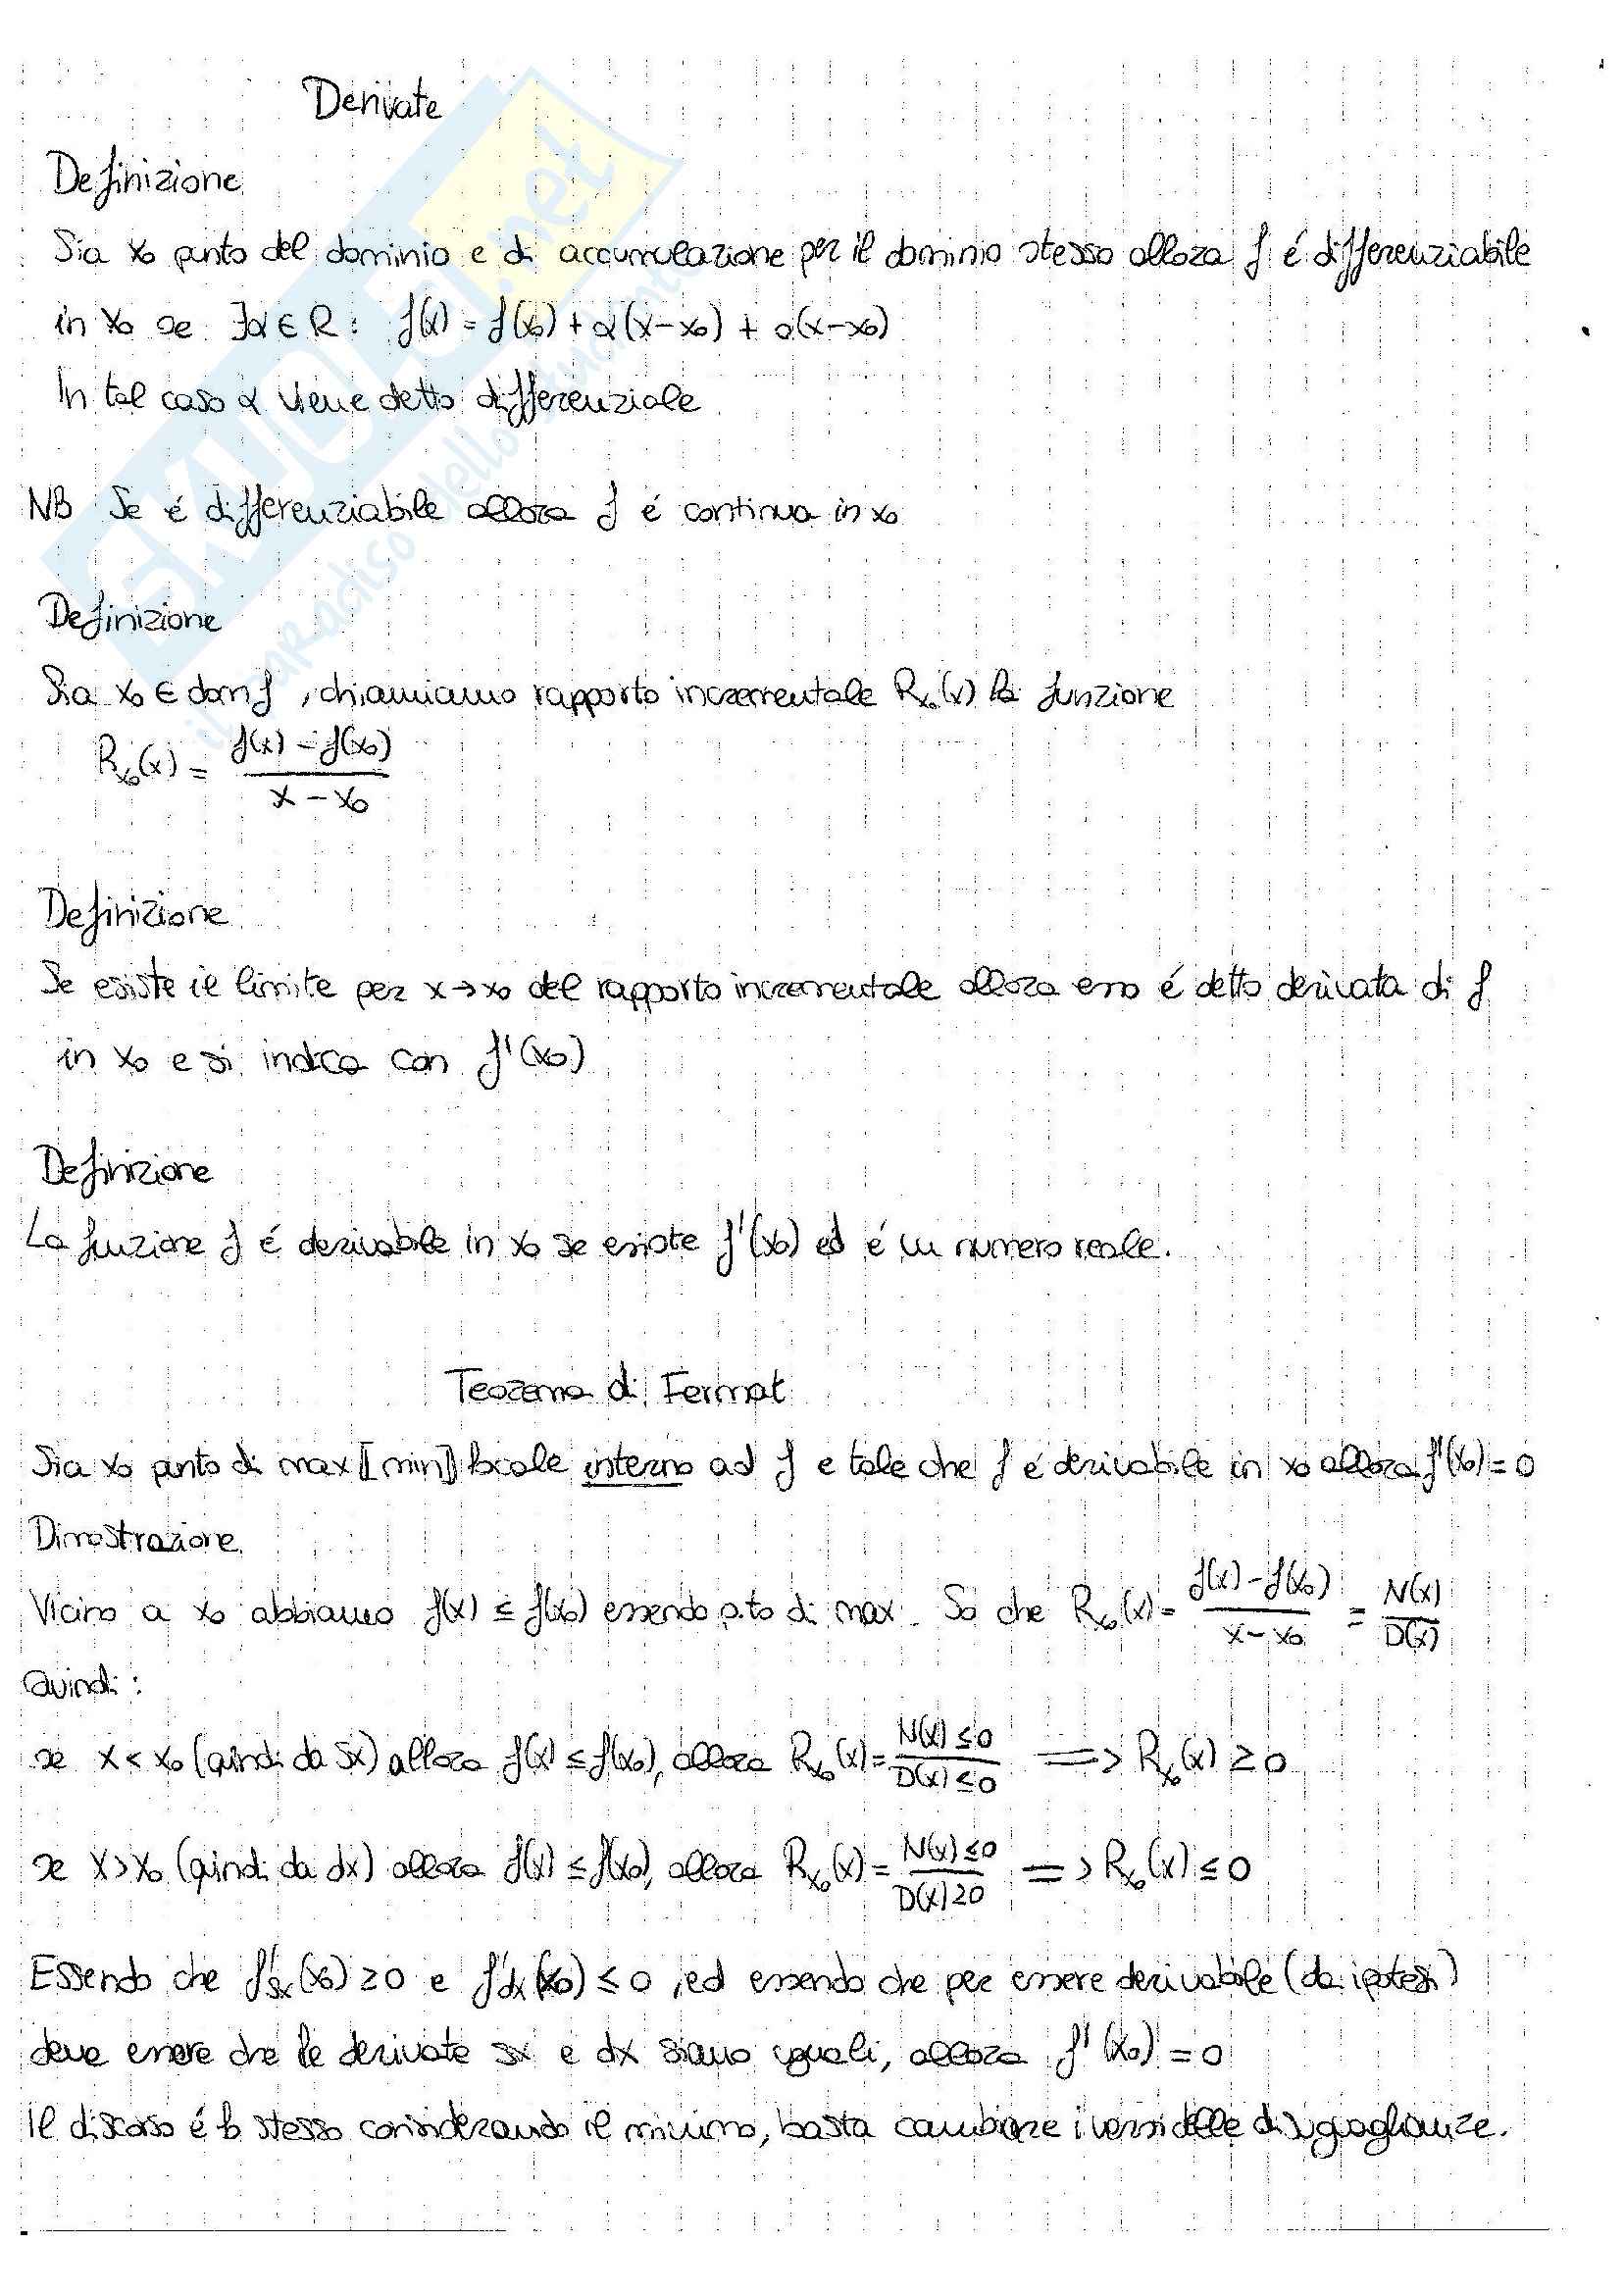 Derivate
Definizione
Sia x₀ punto del dominio e di accumulazione per il dominio stesso allora f é differenziabile
in x₀ se ∃α ∈ R : f(x) = f(x₀) + α(x-x₀) + o(x-x₀)
In tal caso α viene detto differenziale
NB Se é differenziabile allora f é continua in x₀
Definizione
Sia x₀ ∈ dom f , chiamiamo rapporto incrementale Rₓ₀(x) la funzione
Rₓ₀(x) = (f(x) - f(x₀)) / (x - x₀)
Definizione
Se esiste il limite per x→x₀ del rapporto incrementale allora esso é detto derivata di f
in x₀ e si indica con f'(x₀)
Definizione
La funzione f é derivabile in x₀ se esiste f'(x₀) ed é un numero reale.
Teorema di Fermat
Sia x₀ punto di max [min] locale interno ad f e tale che f é derivabile in x₀ allora f'(x₀) = 0
Dimostrazione
Vicino a x₀ abbiamo f(x) ≤ f(x₀) essendo p.to di max. So che Rₓ₀(x) = (f(x) - f(x₀)) / (x - x₀) = N(x) / D(x)
Quindi :
se x < x₀ (quindi da sx) allora f(x) ≤ f(x₀), allora Rₓ₀(x) = N(x) ≤ 0 / D(x) ≤ 0 => Rₓ₀(x) ≥ 0
se x > x₀ (quindi da dx) allora f(x) ≤ f(x₀), allora Rₓ₀(x) = N(x) ≤ 0 / D(x) ≥ 0 => Rₓ₀(x) ≤ 0
Essendo che f'sx(x₀) ≥ 0 e f'dx(x₀) ≤ 0 , ed essendo che per essere derivabile (da ipotesi)
deve essere che le derivate sx e dx siano uguali, allora f'(x₀) = 0
Il discorso é lo stesso considerando il minimo, basta cambiare i versi delle disuguaglianze.